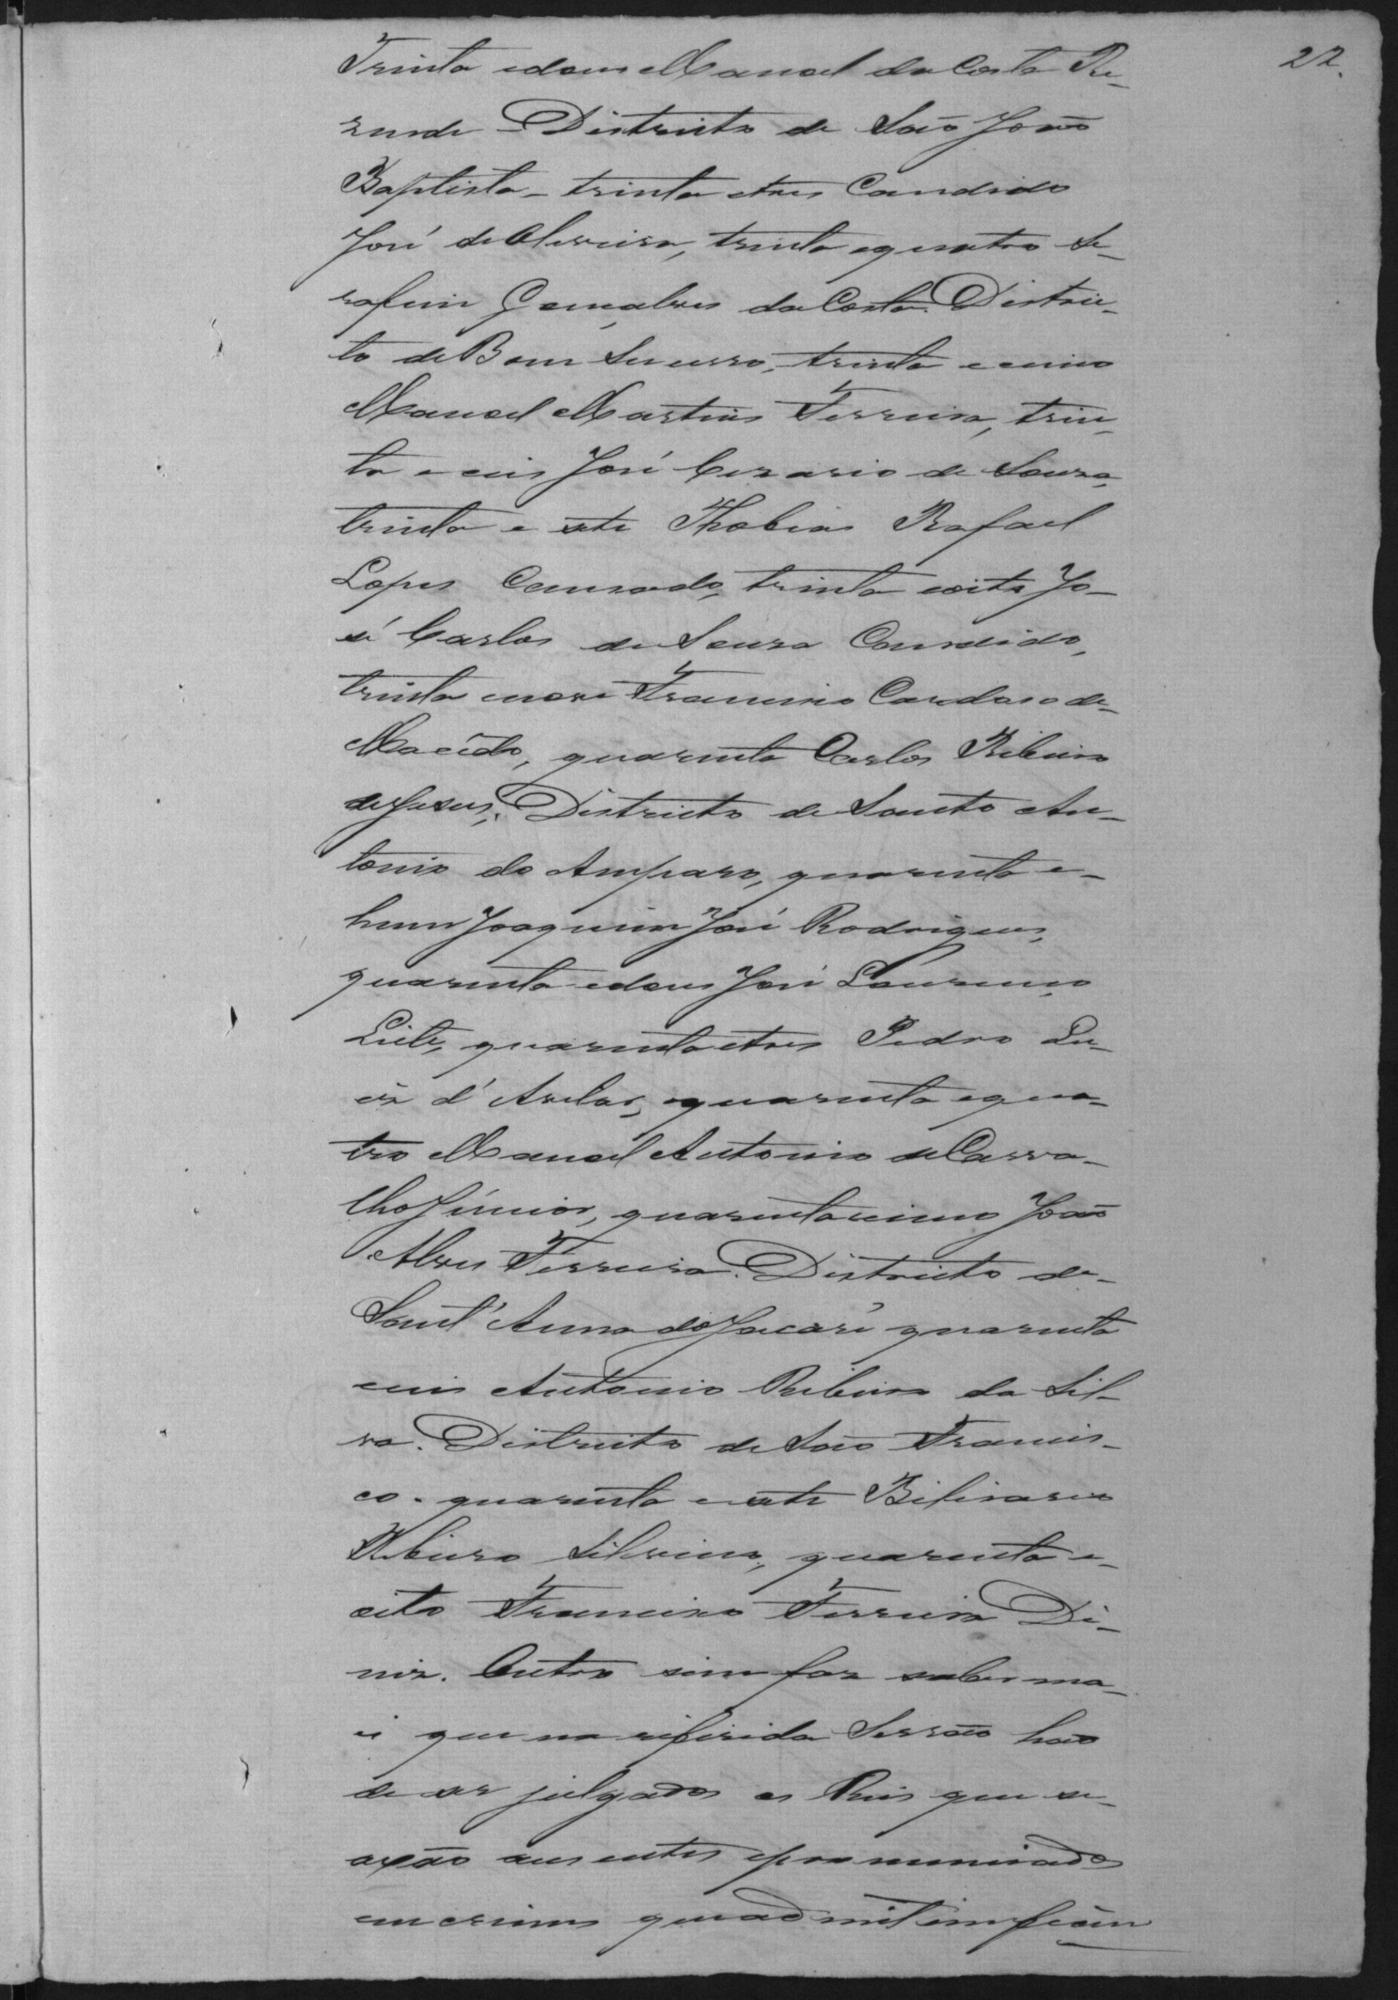 22.
Trinta e dous Manoel da Costa Re-
zende Districto de São João
Baptista - trinta e tres Candido
José de Oliveira, trinta e quatro Se-
rafim Gonçalves da Costa. Distric-
to de Bom Sucesso, trinta e cinco
Manoel Martins Ferreira, trin-
ta e seis José Cezario de Souza,
trinta e sete Thobias Rafael
Lopes Cansado, trinta e oito Jo-
sé Carlos de Souza Candido,
trinta e nove Francisco Cardoso de
Macêdo, quarenta Carlos Ribeiro
de Jesus; Districto de Santo An-
tonio do Amparo, quarenta e
hum Joaquim José Rodrigues,
quarenta e dous José Lourenço
Leite, quarenta e tres Pedro Lu-
iz d'Avelar, quarenta e qua-
tro Manoel Antonio de Carva-
lho Júnior, quarenta cinco João
Alves Ferreira. Districto de
Sant'Anna do Jacaré quarenta
e seis Antonio Ribeiro da Sil-
va. Districto de São Francis-
co. quarenta e sete Bilisario
Ribeiro Silverio, quarenta e
oito Francisco Ferreira Di-
niz. Outro sim faz saber ma-
is que na referida Sessão hão
de ser julgados os Reis que se
axão ausentes e pronunciados
em crimes que admitem fian